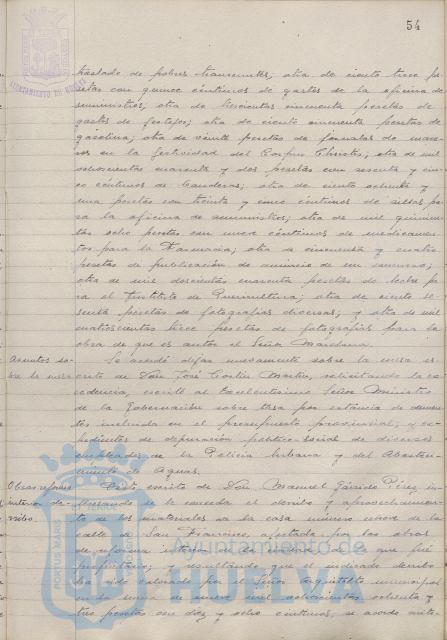 54
traslado de pobres transeuntes; otra de ciento trece pe-
setas con quince céntimos de gastos de la oficina de
suministros; otra de trescientas cincuenta pesetas de
gastos de festejos; otra de ciento cincuenta pesetas de
gasolina; otra de veinte pesetas de jornales de
en la festividad del Corpus Christi; otra de mil
ochocientas cuarenta y dos pesetas con sesenta y cin-
co céntimos de banderas; otra de ciento ochenta y
una pesetas con treinta y cinco céntimos de sillas pa-
ra la oficina de suministros; otra de mil quinien-
tas ocho pesetas con nueve céntimos de medicamen-
tos para la Farmacia; otra de cincuenta y cuatro
pesetas de publicación de anuncio de un concurso;
otra de mil doscientas cuarenta pesetas de leche pa-
ra el Instituto de Puericultura; otra de ciento se-
senta pesetas de fotografías diversas; y otra de mil
cuatrocientas trece pesetas de fotografías para la
obra de que es autor el Señor Marchena.
Asuntos so-
bre la mesa
Se acordó dejar nuevamente sobre la mesa es-
crito de Don José Martín, solicitando la ex-
cedencia, escrito al Excelentísimo Señor Ministro
de la Gobernación sobre tasa por estancia de demen-
tes incluida en el presupuesto provincial; y ex-
pedientes de depuración político-social de diversos
empleados de la Policía Urbana y del Abasteci-
miento de Aguas.
Obras reforma
interior de-
rribo.
Visto escrito de Don Manuel Garrido Pérez in-
teresando se le conceda el derribo y aprovechamien-
to de los materiales de la casa número nueve de la
calle de San Francisco, afectada por las obras
de reforma interior de la ciudad de que fué
propietario; y resultando que el indicado derribo
ha sido valorado por el Señor Arquitecto municipal
en la suma de nueve mil ochocientas ochenta y
tres pesetas con diez y ocho céntimos, se acordó
AYUNTAMIENTO DE HUELVA
PORTUS MARIS
Ayuntamiento de
HUELVA